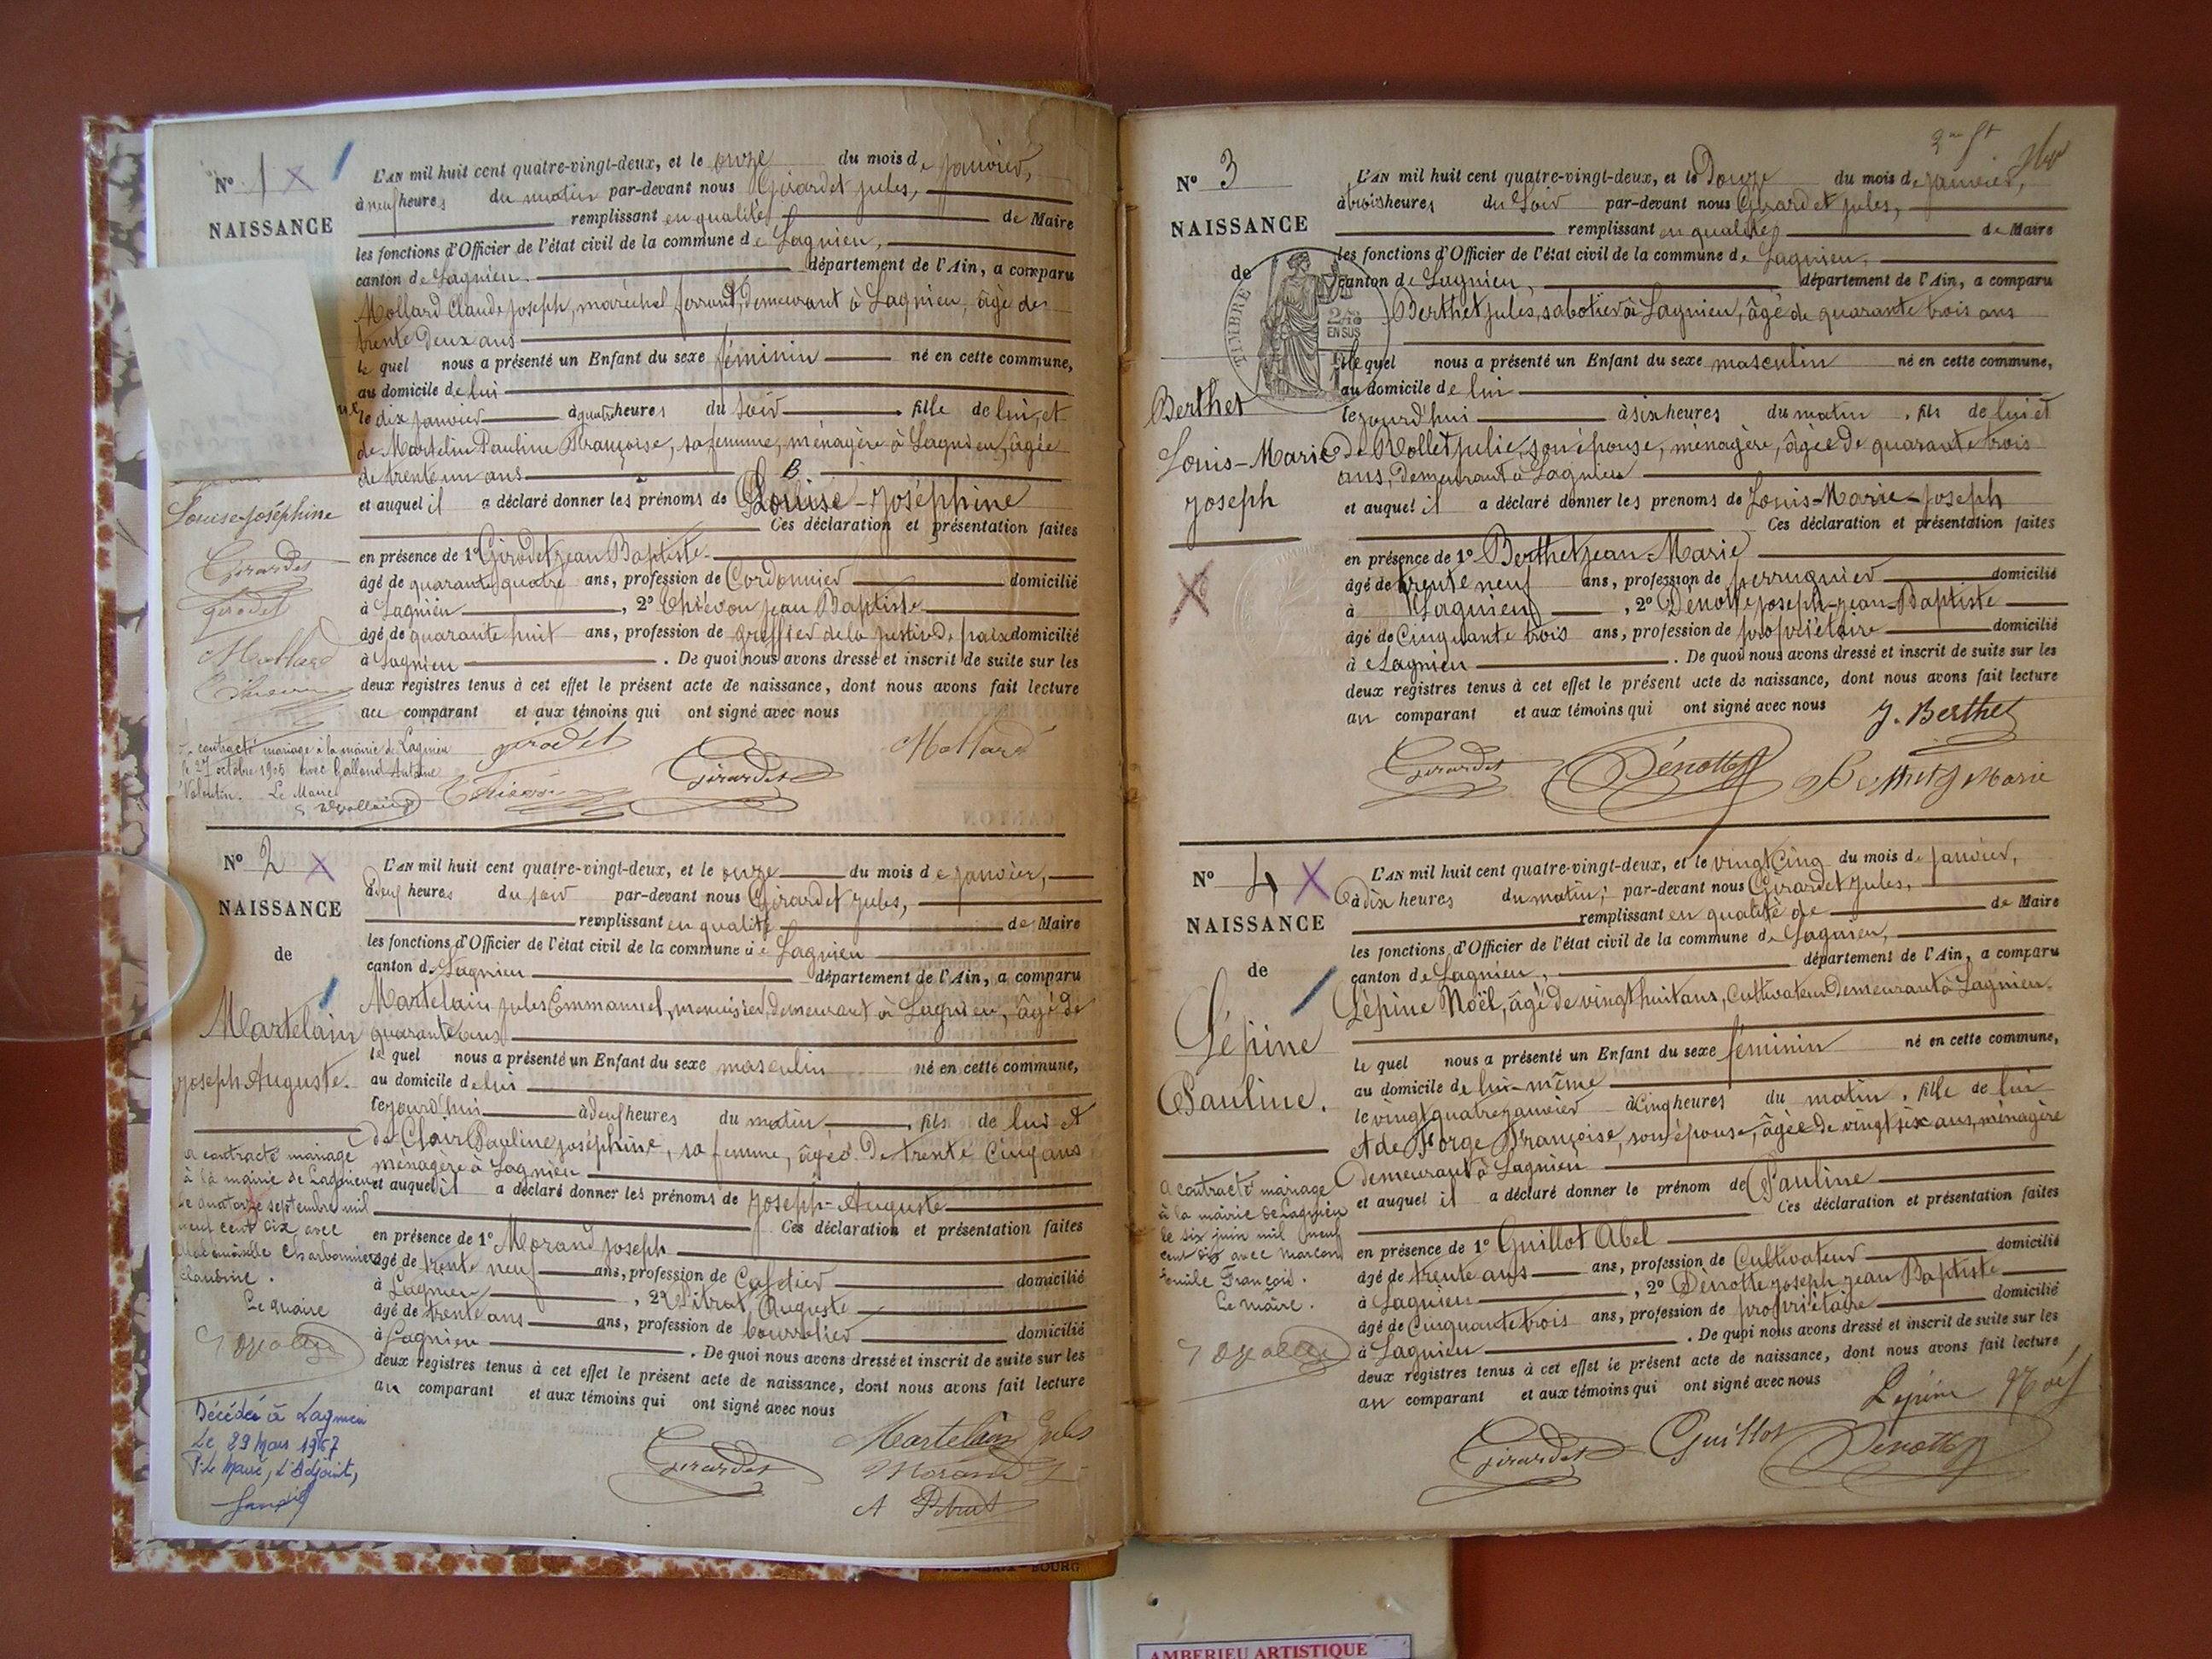 N° 1 X
NAISSANCE
L'AN mil huit cent quatre-vingt-deux, et le onze du mois de janvier,
à neuf heures du matin par-devant nous Girardet jules,
remplissant en qualité de Maire
les fonctions d'Officier de l'état civil de la commune de Lagnieu,
canton de Lagnieu. département de l'Ain, a comparu
Mollard Claude joseph, maréchal ferrand, demeurant à Lagnieu, âgé de
trente deux ans
le quel nous a présenté un Enfant du sexe féminin né en cette commune,
au domicile de lui
le dix janvier à quatre heures du soir fille de lui et
de Martelin Pauline Françoise, sa femme, ménagère à Lagnieu, âgée
de trente un ans
et auquel il a déclaré donner les prénoms de Louise-Joséphine
Ces déclaration et présentation faites
en présence de 1° Girodet jean Baptiste
âgé de quarante quatre ans, profession de Cordonnier domicilié
à Lagnieu, 2° Chievon jean Baptiste
âgé de quarante huit ans, profession de greffier de la justice de paix domicilié
à Lagnieu. De quoi nous avons dressé et inscrit de suite sur les
deux registres tenus à cet effet le présent acte de naissance, dont nous avons fait lecture
au comparant et aux témoins qui ont signé avec nous
Louise-Joséphine
Girardet
girodet
Mollard
contracté mariage à la mairie de Lagnieu
le 27 octobre 1905 avec Galland Antoine
Valentin. Le Maire
girodet Mollard
Girardet
N° 2 X
NAISSANCE
de
Martelain
joseph Auguste.
L'AN mil huit cent quatre-vingt-deux, et le onze du mois de janvier,
à deux heures du soir par-devant nous Girardet jules,
remplissant en qualité de Maire
les fonctions d'Officier de l'état civil de la commune de Lagnieu
canton de Lagnieu département de l'Ain, a comparu
Martelain jules Emmanuel, menuisier, demeurant à Lagnieu, âgé de
quarante ans
le quel nous a présenté un Enfant du sexe masculin né en cette commune,
au domicile de lui
le jourd'hui à deux heures du matin, fils de lui et
de Clair Pauline joséphine, sa femme, âgée de trente cinq ans
ménagère à Lagnieu
et auquel il a déclaré donner les prénoms de Joseph-Auguste
Ces déclaration et présentation faites
en présence de 1° Morand joseph
âgé de trente neuf ans, profession de Cafetier domicilié
à Lagnieu, 2° Pitrat Auguste
âgé de trente ans ans, profession de bourrelier domicilié
à Lagnieu. De quoi nous avons dressé et inscrit de suite sur les
deux registres tenus à cet effet le présent acte de naissance, dont nous avons fait lecture
au comparant et aux témoins qui ont signé avec nous
a contracté mariage
à la mairie de Lagnieu
le quatorze septembre mil
neuf cent dix avec
Mademoiselle Charbonnier
Claudine.
Le maire
Décédé à Lagnieu
Le 29 Mars 1967
P. le Maire, l'Adjoint,
Martelain jules
Girardet Morand J
A Pitrat
N° 3
NAISSANCE
de
TIMBRE
2/10
EN SUS
Berthet
Louis-Marie
joseph
X
L'AN mil huit cent quatre-vingt-deux, et le Douze du mois de janvier,
à trois heures du Soir par-devant nous Girardet jules,
remplissant en qualité de Maire
les fonctions d'Officier de l'état civil de la commune de Lagnieu,
canton de Lagnieu, département de l'Ain, a comparu
Berthet jules, sabotier à Lagnieu, âgé de quarante trois ans
le quel nous a présenté un Enfant du sexe masculin né en cette commune,
au domicile de lui
le jourd'hui à six heures du matin, fils de lui et
de Mollet julie, son épouse, ménagère, âgée de quarante trois
ans, demeurant à Lagnieu
et auquel il a déclaré donner les prenoms de Louis-Marie-Joseph
Ces déclaration et présentation faites
en présence de 1° Berthet jean-Marie
âgé de trente neuf ans, profession de perruquier domicilié
à Lagnieu, 2° Dénotte joseph-jean-Baptiste
âgé de Cinquante trois ans, profession de propriétaire domicilié
à Lagnieu. De quoi nous avons dressé et inscrit de suite sur les
deux registres tenus à cet effet le présent acte de naissance, dont nous avons fait lecture
au comparant et aux témoins qui ont signé avec nous
J. Berthet
Girardet Dénotte Berthet J Marie
N° 4 X
NAISSANCE
de
Lépine
Pauline.
L'AN mil huit cent quatre-vingt-deux, et le vingt Cinq du mois de janvier,
à dix heures du matin, par-devant nous Girardet jules,
remplissant en qualité de de Maire
les fonctions d'Officier de l'état civil de la commune de Lagnieu,
canton de Lagnieu, département de l'Ain, a comparu
Lépine Noël, âgé de vingt huit ans, Cultivateur demeurant à Lagnieu.
le quel nous a présenté un Enfant du sexe féminin né en cette commune,
au domicile de lui-même
le vingt quatre janvier à Cinq heures du matin, fille de lui
et de Forge Françoise, son épouse, âgée de vingt six ans, ménagère
demeurant à Lagnieu
et auquel il a déclaré donner le prénom de Pauline
Ces déclaration et présentation faites
en présence de 1° Guillot Abel
âgé de trente ans ans, profession de Cultivateur domicilié
à Lagnieu, 2° Dénotte joseph jean Baptiste
âgé de Cinquante trois ans, profession de propriétaire domicilié
à Lagnieu. De quoi nous avons dressé et inscrit de suite sur les
deux registres tenus à cet effet le présent acte de naissance, dont nous avons fait lecture
au comparant et aux témoins qui ont signé avec nous
A contracté mariage
à la mairie de Lagnieu
le six juin mil neuf
cent dix avec Marcon
Emile François.
Le maire.
Lépine Noël
Girardet Guillot Dénotte
BOURG
AMBERIEU ARTISTIQUE